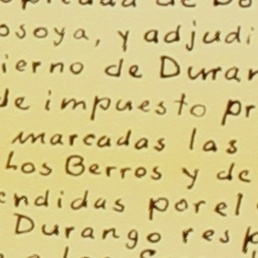 osoya, y adjudi
ierno de Duran
de impuesto pr
marcadas las
Los Berros y de
endidas por el
Durango resp